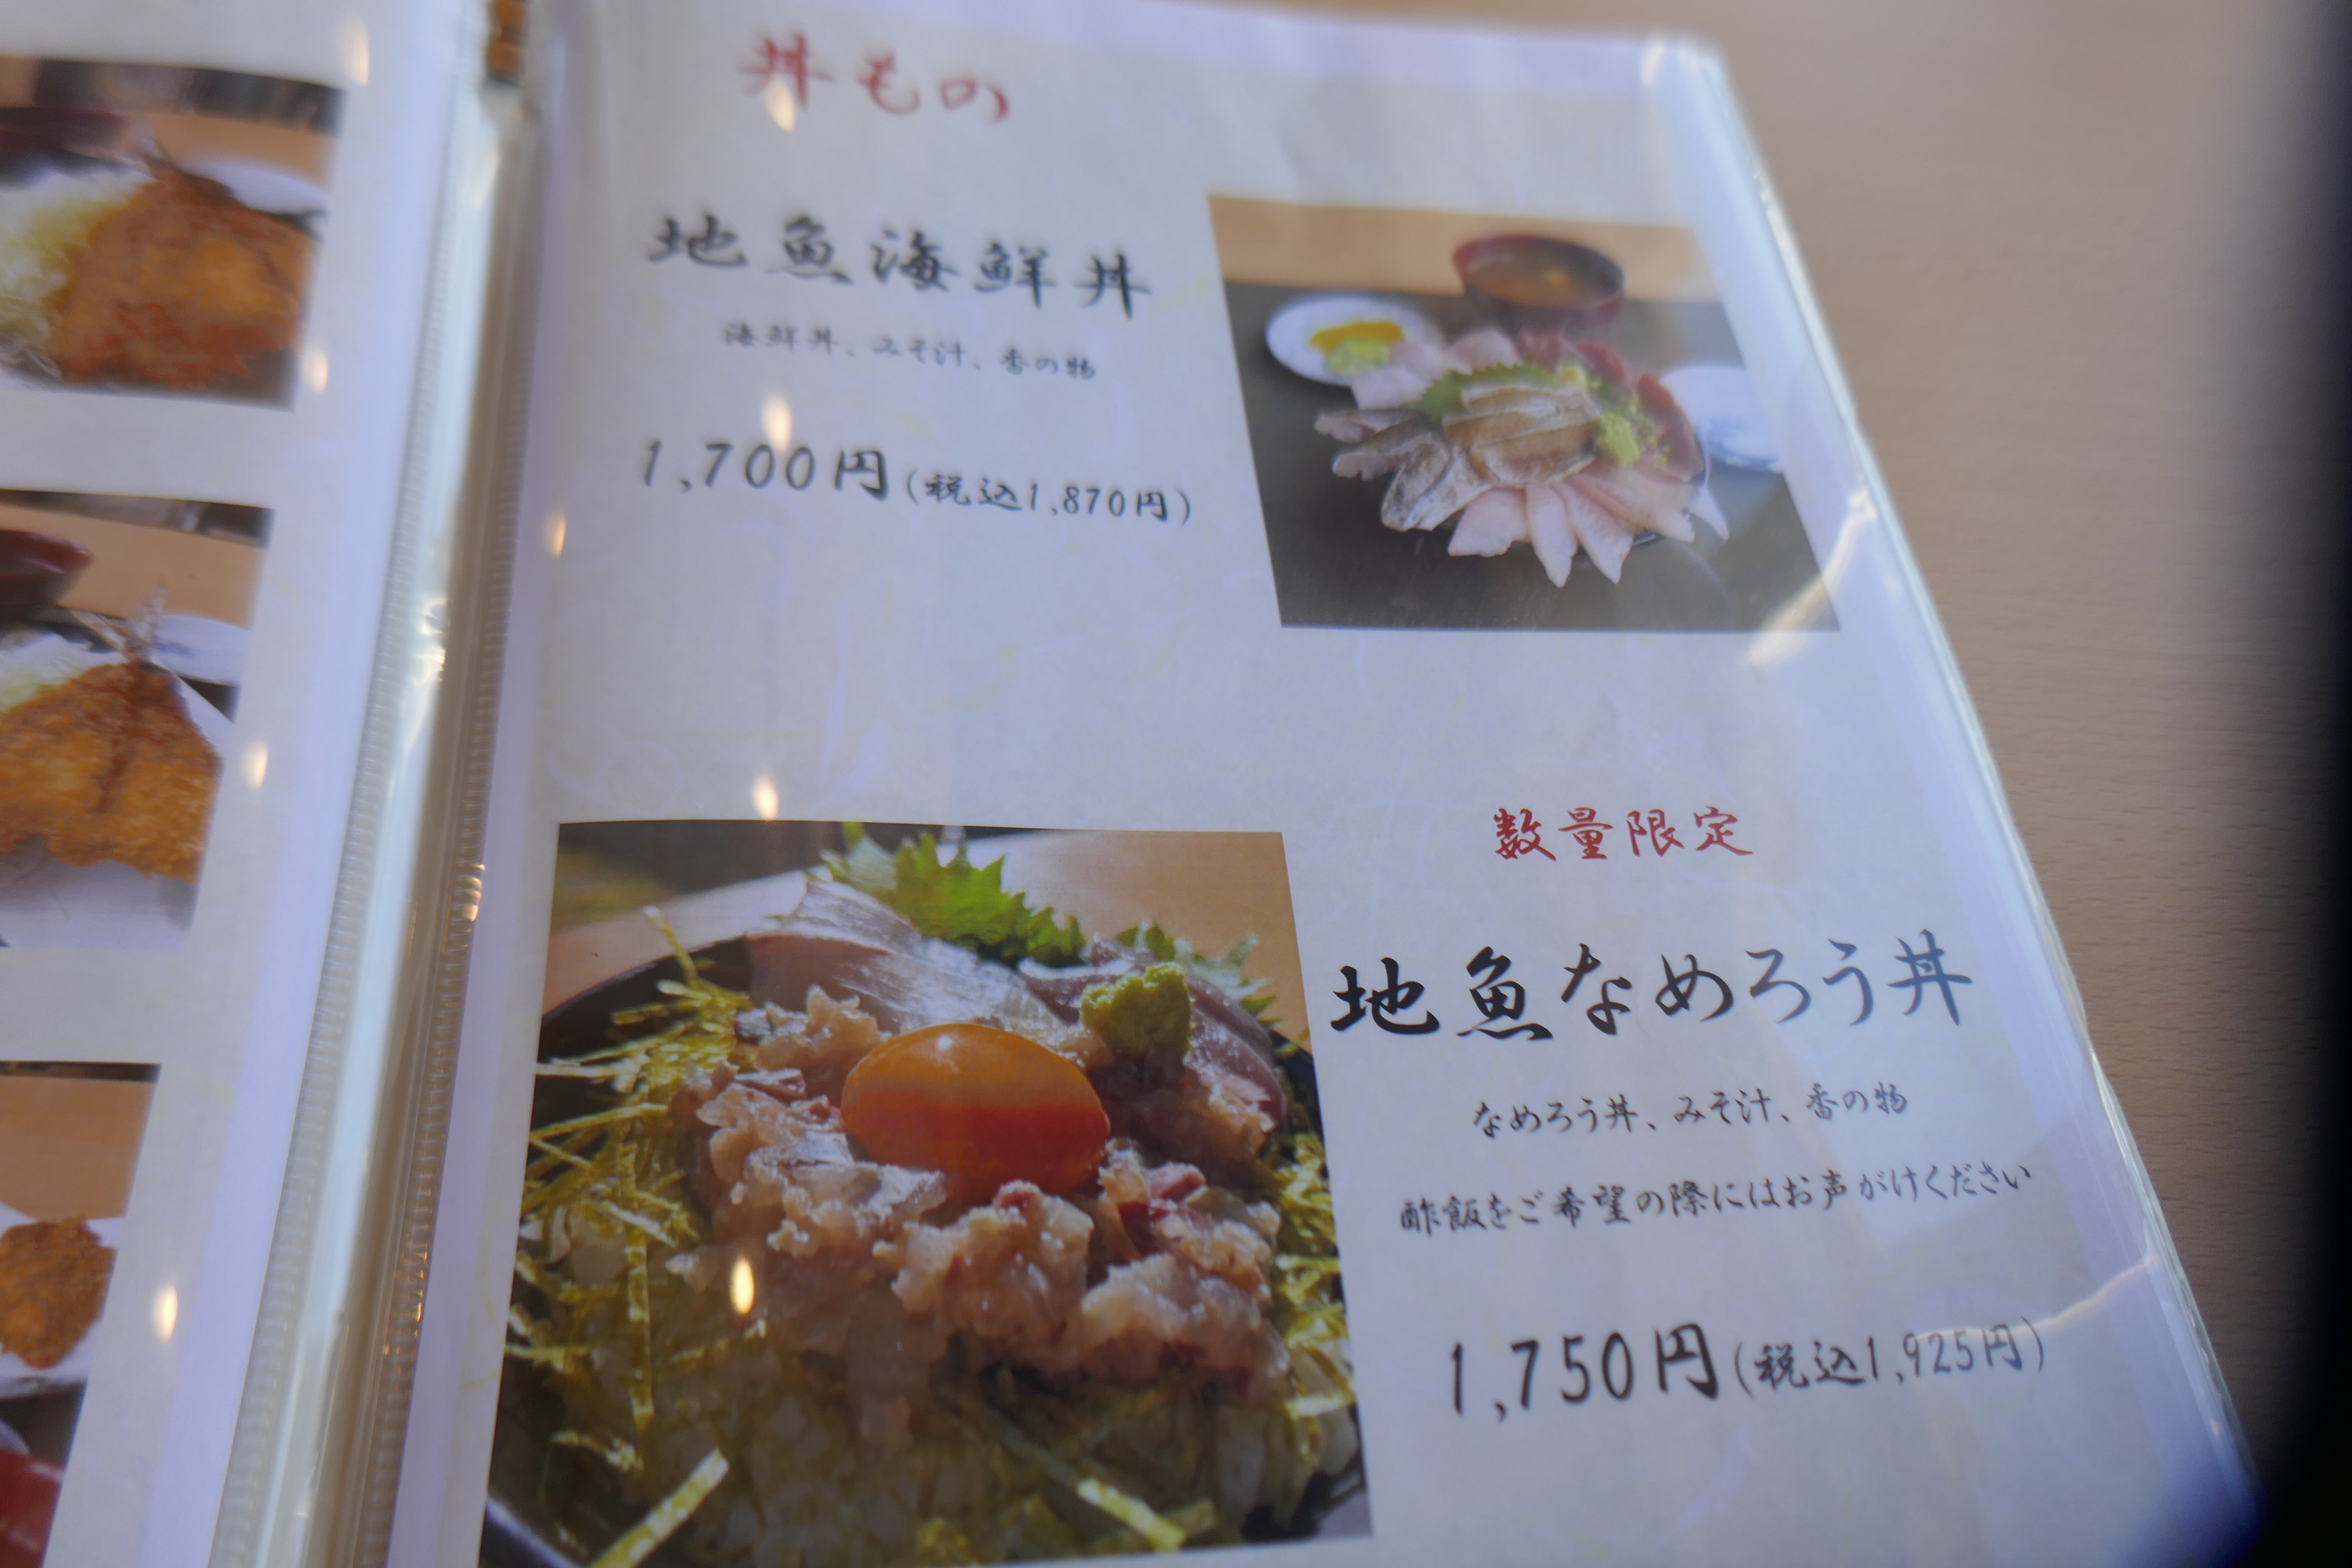 丼もの
地魚海鮮丼
海鮮丼、みそ汁、香の物
1,700円(税込1,870円)
数量限定
地魚なめろう丼
なめろう丼、みそ汁、香の物
酢飯をご希望の際にはお声がけください
1,750円(税込1,925円)